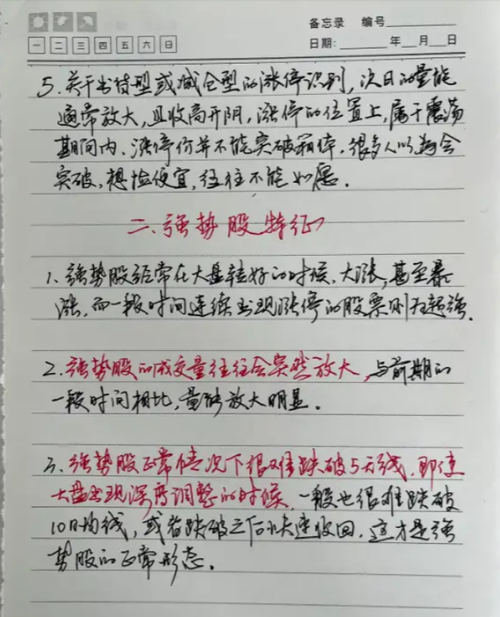 备忘录 编号
一 二 三 四 五 六 日
日期: 年 月 日
5. 关于出货型或减仓型的涨停识别, 次日的量能
通常放大, 且收高开阴, 涨停的位置上, 属于震荡
期间内, 涨停价并不能突破箱体, 很多人以为会
突破, 想捡便宜, 往往不能如愿.
二. 强势股特征
1. 强势股经常在大盘转好的时候, 大涨, 甚至暴
涨, 而一段时间连续出现涨停的股票则为超强.
2. 强势股的成交量往往会突然放大, 与前期的
一段时间相比, 量能放大明显.
3. 强势股正常情况下很难跌破5天线, 即使
大盘出现深度调整的时候, 一般也很难跌破
10日均线, 或者跌破之后快速收回, 这才是强
势股的正常形态.